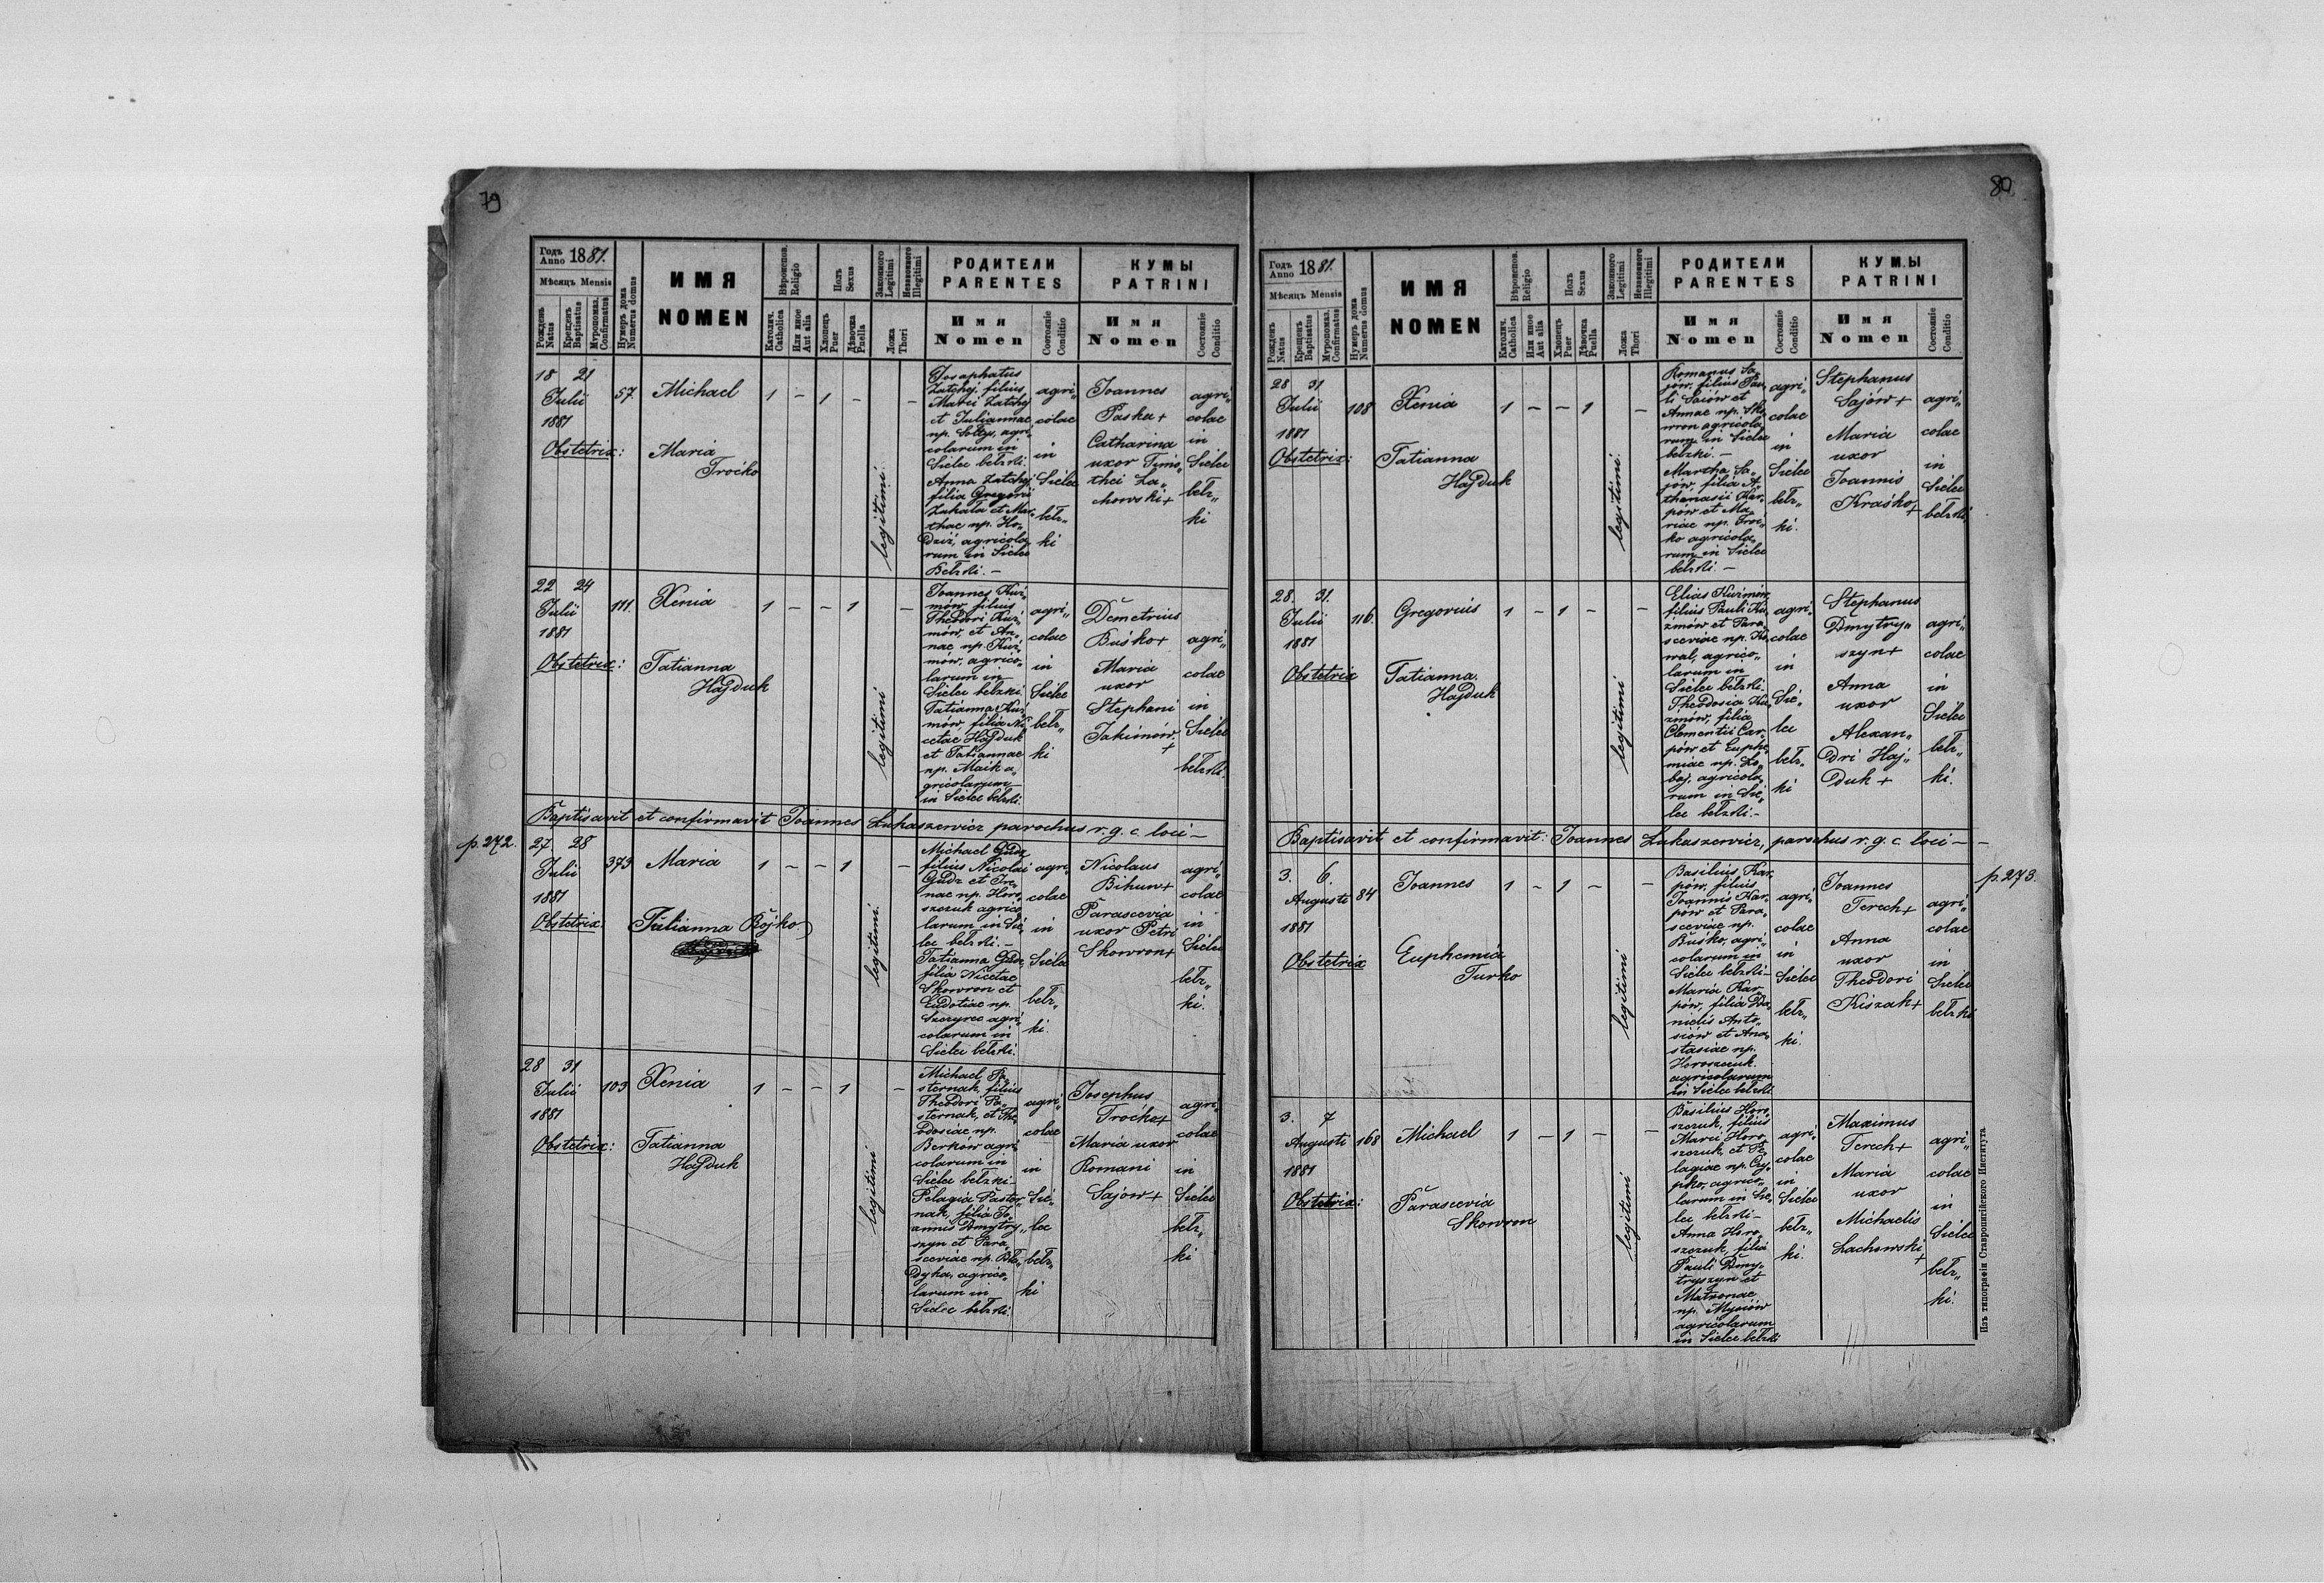 79
Годъ Anno 1881.
Мѣсяцъ Mensis
Рожденъ Natus
Крещенъ Baptisatus
Муропомаз. Confirmatus
Нумеръ дома Numerus domus
ИМЯ
NOMEN
Вѣроиспов. Religio
Католич. Catholica
Или иное Aut alia
Полъ Sexus
Хлопецъ Puer
Дѣвочка Puella
Законного Legitimi
Незаконного Illegitimi
Ложа Thori
РОДИТЕЛИ
PARENTES
Имя
Nomen
Состояніе Conditio
КУМЫ
PATRINI
Имя
Nomen
Состояніе Conditio
18 21
Julii 57 Michael 1 – 1 – –
1881
Obstetrix: Maria
Troćko
legitimi
Josaphatus
filius
Marci
et Juliannae
np. Soltys, agri„
colarum in
Sielec bełzki
Anna
filia Gregorii
et Mar„
thae np. Ho„
dziź, agricola„
rum in Sielec
Bełzki. –
agri„
colae
in
Sielec
bełz„
ki
Joannes
Paska +
Catharina
uxor Timo„
thei La„
chowski +
agri„
colae
in
Sielec
bełz„
ki
22 24
Julii 111. Xenia 1 – – 1 –
1881
Obstetrix: Tatianna
Hajduk
legitimi
Joannes Kuź„
mów, filius
Theodori Kuź„
mów, et An„
nae np. Kuź„
mów, agrico„
larum in
Sielec bełzki.
Tatianna Kuź„
mów, filia Ni„
cetae Hajduk
et Tatiannae
np. Maik a„
gricolarum
in Sielec bełzki.
agri„
colae
in
Sielec
bełz„
ki
Demetrius
Buśko +
Maria
uxor
Stephani
Jakimów
+
agri„
colae
in
Sielec
bełzki.
Baptisavit et confirmavit Joannes Lukaszewicz parochus r. g. c. loci –
p. 272.
27 28
Julii 373 Maria 1 – – 1 –
1881
Obstetrix: Julianna Bojko
legitimi
Michael Gudz
filius Nicolai
Gudz et Ire„
nae np. Horo„
szczuk agrico„
larum in Sie„
lec bełzki. –
Tatianna Gudz
filia Nicetae
Skowron et
Eudotiae np.
Szczyrec agri„
colarum in
Sielec bełzki.
agri„
colae
in
Sielec
bełz„
ki.
Nicolaus
Bihun +
Parascevia
uxor Petri
Skowron +
agri„
colae
in
Sielec
bełz„
ki.
28 31
Julii 103 Xenia 1 – – 1 –
1881
Obstetrix: Tatianna
Hajduk
legitimi
Michael Pa„
sternak, filius
Theodori Pa„
sternak, et The„
odosiae np.
Berków agri„
colarum in
Sielec bełzki –
Pelagia Paster„
nak, filia Jo„
annis Dmytry„
szyn et Para„
sceviae np.
agrico„
larum in
Sielec bełzki
agri„
colae
in
Sie„
lec
bełz„
ki
Josephus
Troćko +
Maria uxor
Romani
Sajow +
agri„
colae
in
Sielec
bełz„
ki
80
Годъ Anno 1881.
Мѣсяцъ Mensis
Рожденъ Natus
Крещенъ Baptisatus
Муропомаз. Confirmatus
Нумеръ дома Numerus domus
ИМЯ
NOMEN
Вѣроиспов. Religio
Католич. Catholica
Или иное Aut alia
Полъ Sexus
Хлопецъ Puer
Дѣвочка Puella
Законного Legitimi
Незаконного Illegitimi
Ложа Thori
РОДИТЕЛИ
PARENTES
Имя
Nomen
Состояніе Conditio
КУМЫ
PATRINI
Имя
Nomen
Состояніе Conditio
28 31
Julii 108 Xenia 1 – – 1 –
1881
Obstetrix: Tatianna
Hajduk
legitimi
Romanus Sa„
jów, filius Pau„
li Sajów et
Annae np. Sko„
wron agricola„
rum in Sielec
bełzki. –
Martha Sa„
jów, filia A„
thanasii Kar„
pów et Ma„
riae np. Troć„
ko agricola„
rum in Sielec
bełzki. –
agri„
colae
in
Sielec
bełz„
ki.
Stephanus
Sajów +
Maria
uxor
Joannis
Kraśko +
agri„
colae
in
Sielec
bełzki.
28. 31.
Julii 116. Gregorius 1 – 1 – –
1881
Obstetrix Tatianna.
Hajduk
legitimi
Elias Kuzmów,
filius Pauli Ku„
zmów et Para„
sceviae np. Ko„
wal, agrico„
larum in
Sielec bełzki.
Theodosia Ku„
zmów, filia
Clementii Car„
pów et Euphe„
miae np. Lo„
boj, agricola„
rum in Sie„
lec bełzki. –
agri„
colae
in
Sie„
lec
bełz„
ki
Stephanus
Dmytry„
szyn +
Anna
uxor
Alexan„
dri Haj„
duk +
agri„
colae
in
Sielec
bełz„
ki.
Baptisavit et confirmavit: Joannes Lukaszewicz, parochus r. g. c. loci – –
p. 273.
3. 6.
Augusti 84 Joannes 1 – 1 – –
1881
Obstetrix Euphemia
Turko
legitimi
Basilius Kar„
pów, filius
Joannis Kar„
pów et Para„
sceviae np.
Buśko, agri„
colarum in
Sielec bełzki –
Maria Kar„
pów, filia Da„
nielis Anto„
siów et Ana„
stasiae np.
Horoszczuk
agricolarum
in Sielec bełzki
agri„
colae
in
Sielec
bełz„
ki.
Joannes
Terech +
Anna
uxor
Theodori
Kiszak +
agri„
colae
in
Sielec
bełzki
3. 7
Augusti 168 Michael 1 – 1 – –
1881
Obstetrix: Parascevia
Skowron
legitimi
Basilius Horo„
szczuk, filius
Marci Horo„
szczuk, et Pe„
lagiae np. Czy„
pko, agrico„
larum in Sie„
lec bełzki –
Anna Horo„
szczuk, filia
Pauli Dmy„
tryszyn et
Matronae
np. Mysiów
agricolarum
in Sielec bełzki
agri„
colae
in
Sielec
bełz„
ki.
Maximus
Terech +
Maria
uxor
Michaelis
Lachowski
+
agri„
colae
in
Sielec
bełz„
ki.
Изъ типографіи Ставропигійского Института